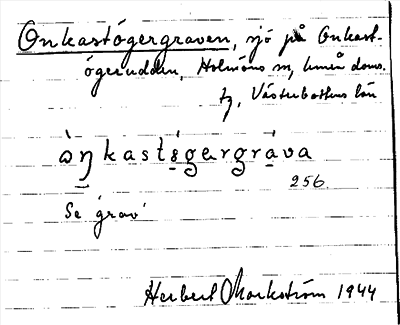 Onkastögergraven, sjö på Onkast-
ögerudden, Holmöns sn, Umeå doms.
tg, Västerbottens län
ὼŋkastǿgergráva
256.
Se 'grav'
Herbert Markström 1944